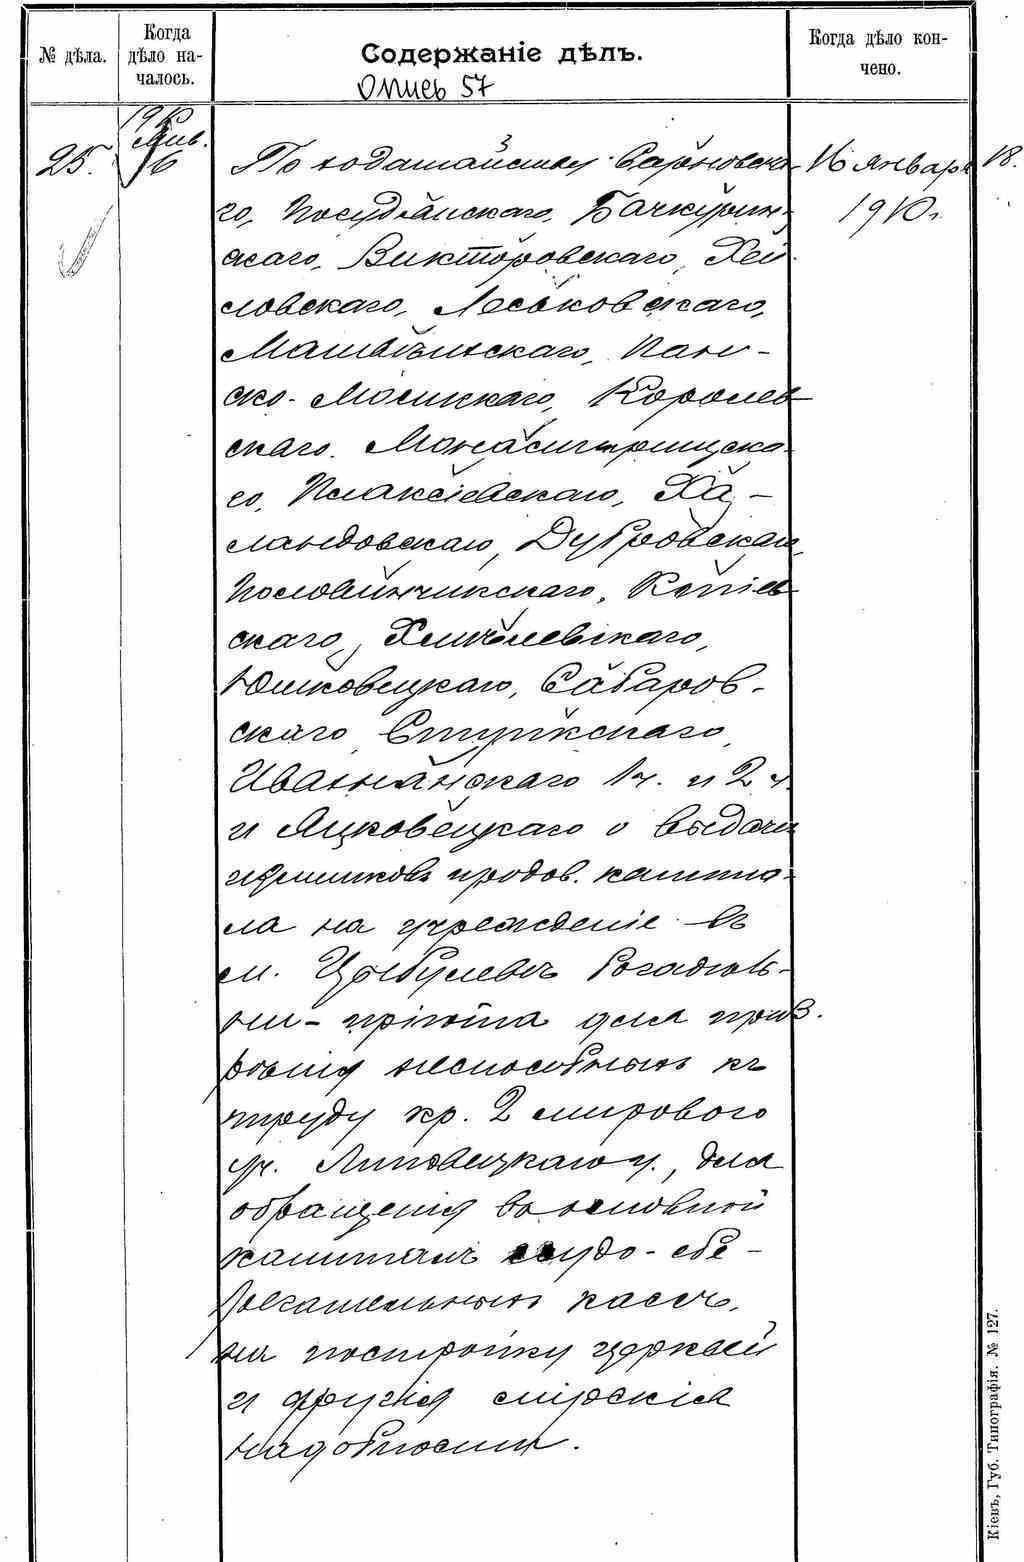 № дѣла.
Когда
дѣло на-
чалось.
Содержаніе дѣлъ.
Когда дѣло кон-
чено.
Опись 57
1910
Янв.
25.
16
По ходатайствам
16 января
18.
го, Посудѣвскаго, Бачкурин-
1910 г.
скаго, Викторовскаго, Хей-
ловскаго, Леськовскаго,
скаго, Пан-
ско-Мостскаго, Королев-
скаго, Монастырищска-
го, Плаксіевскаго, Ха-
ландовскаго, Дубровскаго,
Половинчикскаго, Копіев-
скаго, Хмилевскаго,
Юшковецкаго, Сабаров-
скаго,
Иваньскаго 1 ч. и 2 ч.
и Яцковецкаго о выдачи
излишковъ продов. капита-
ла на учрежденіе въ
м. Цыбулевѣ богадѣль-
ни-пріюта для приз.
рѣнія неспособныхъ къ
труду кр. 2 мирового
уч. Липовецкаго у., для
обращенія въ основной
капиталъ ссудо-сбе-
регательныхъ кассъ,
на постройку церквей
и другія мірскія
надобности.
Кіевъ, Губ. Типографія. № 127.